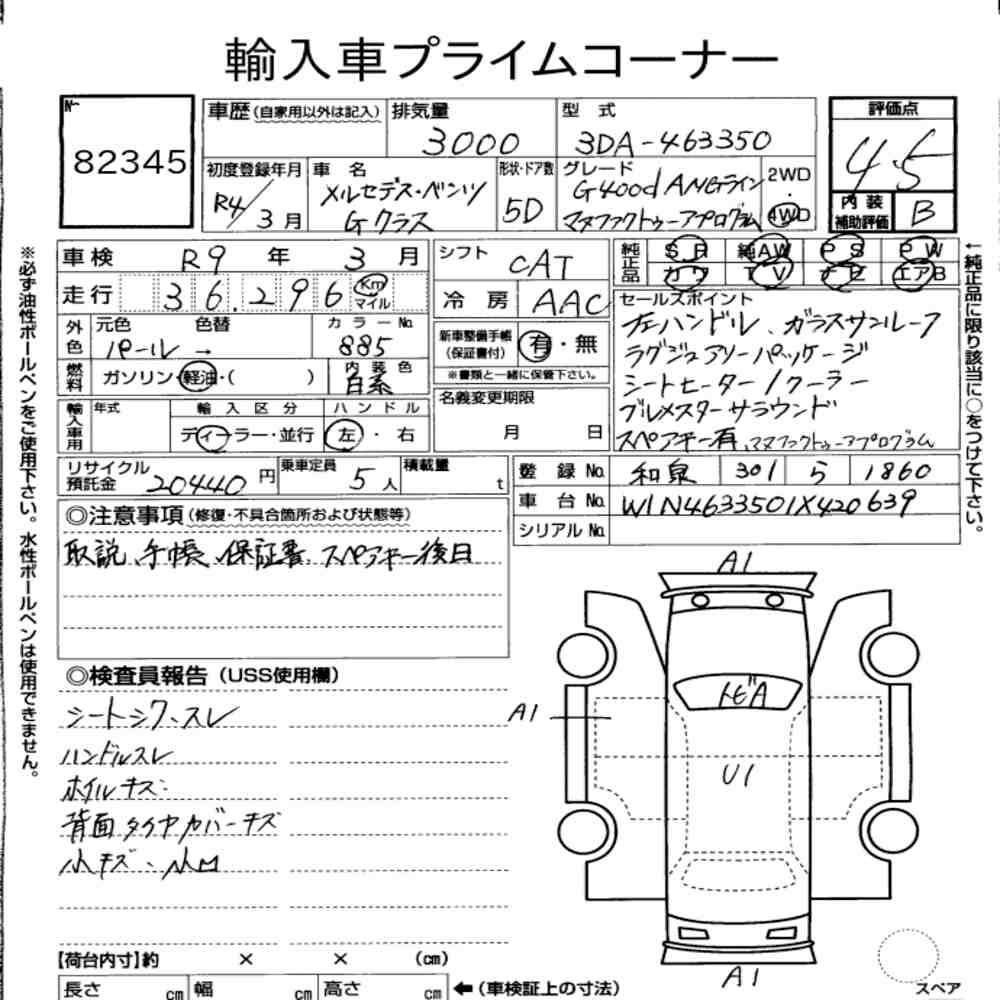 輸入車プライムコーナー
№
82345
車歴(自家用以外は記入)
排気量
3000
型式
3DA-463350
評価点
4.5
内装
補助評価
B
初度登録年月
R4/3月
車名
メルセデス・ベンツ
Gクラス
形状・ドア数
5D
グレード
G400d AMGライン
マヌファクトゥーアプログラム
2WD
・
4WD
車検 R9年 3月
走行 36.296 Km
マイル
シフト CAT
冷房 AAC
純正品
SR 純AW PS PW
カワ TV ナビ エアB
セールスポイント
左ハンドル、ガラスサンルーフ
ラグジュアリーパッケージ
シートヒーター/クーラー
ブルメスターサラウンド
スペアキー有、マヌファクトゥーアプログラム
外色
元色 色替
パール→
カラーNo.
885
燃料
ガソリン・軽油・( )
内装色
白系
新車整備手帳
(保証書付)
有・無
※書類と一緒に保管下さい。
名義変更期限
月 日
輸入車用
年式
輸入区分
ディーラー・並行
ハンドル
左・右
リサイクル
預託金 20440円
乗車定員
5人
積載量
t
登録No. 和泉 301 ら 1860
車台No. W1N4633501X420639
シリアルNo.
◎注意事項(修復・不具合箇所および状態等)
取説、手帳、保証書、スペアキー後日
◎検査員報告(USS使用欄)
シートシワ、スレ
ハンドルスレ
ホイルキズ
背面タイヤカバーキズ
小キズ、小凹
A1
トビA
A1
U1
A1
【荷台内寸】約 × × (cm)
長さ cm 幅 cm 高さ cm ←(車検証上の寸法)
スペア
※必ず油性ボールペンをご使用下さい。水性ボールペンは使用できません。
←純正品に限り該当に○をつけて下さい。